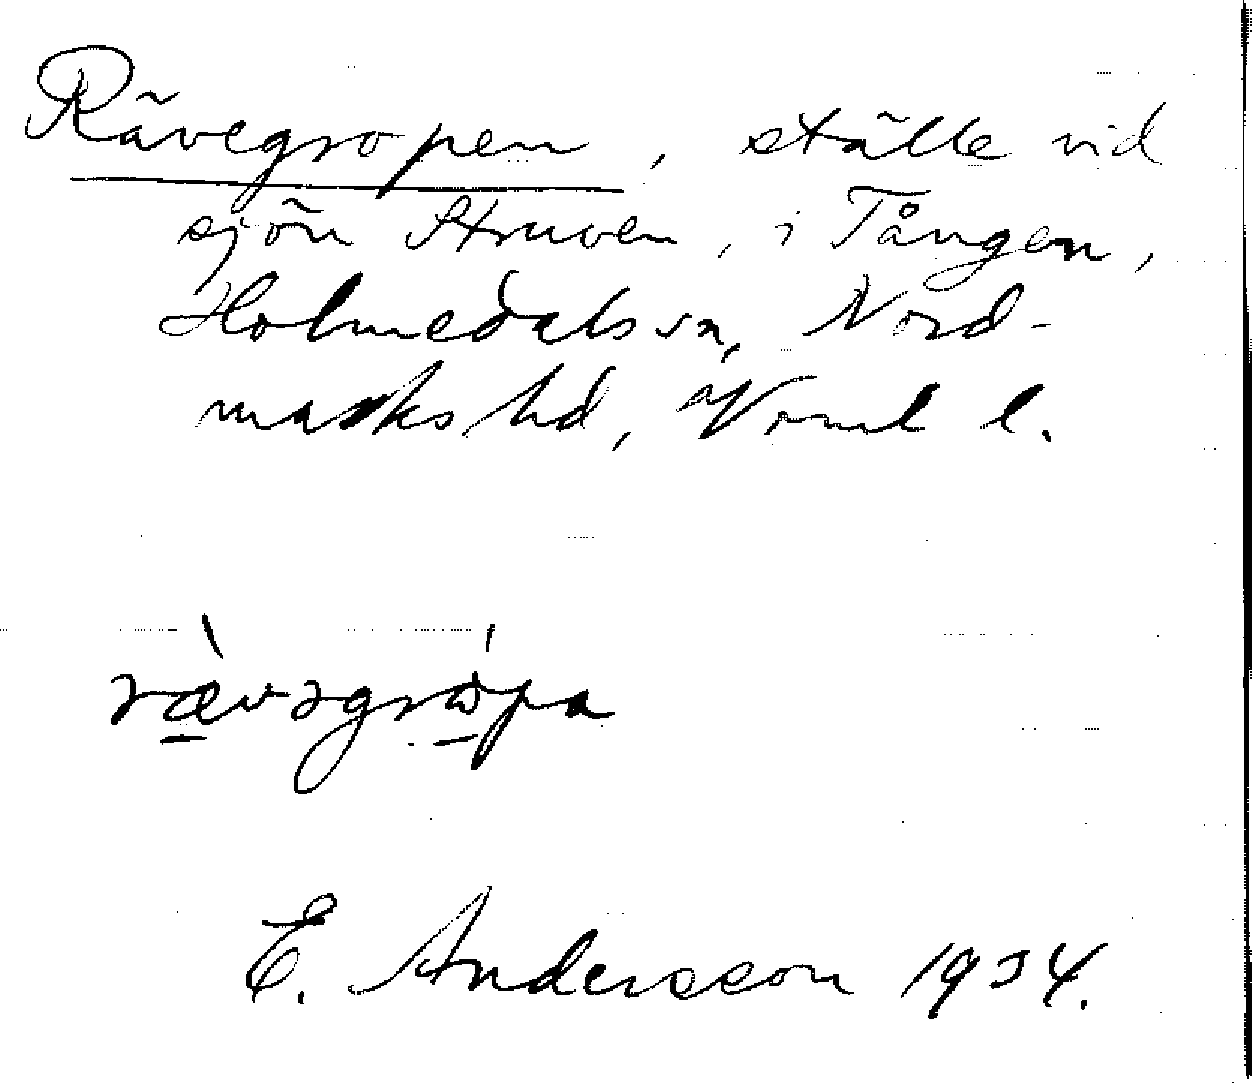 Rävegropen, ställe vid
sjön Struven, i Tången,
Holmedals sn, Nord-
marks hd, Vrml l.
E. Andersson 1934.